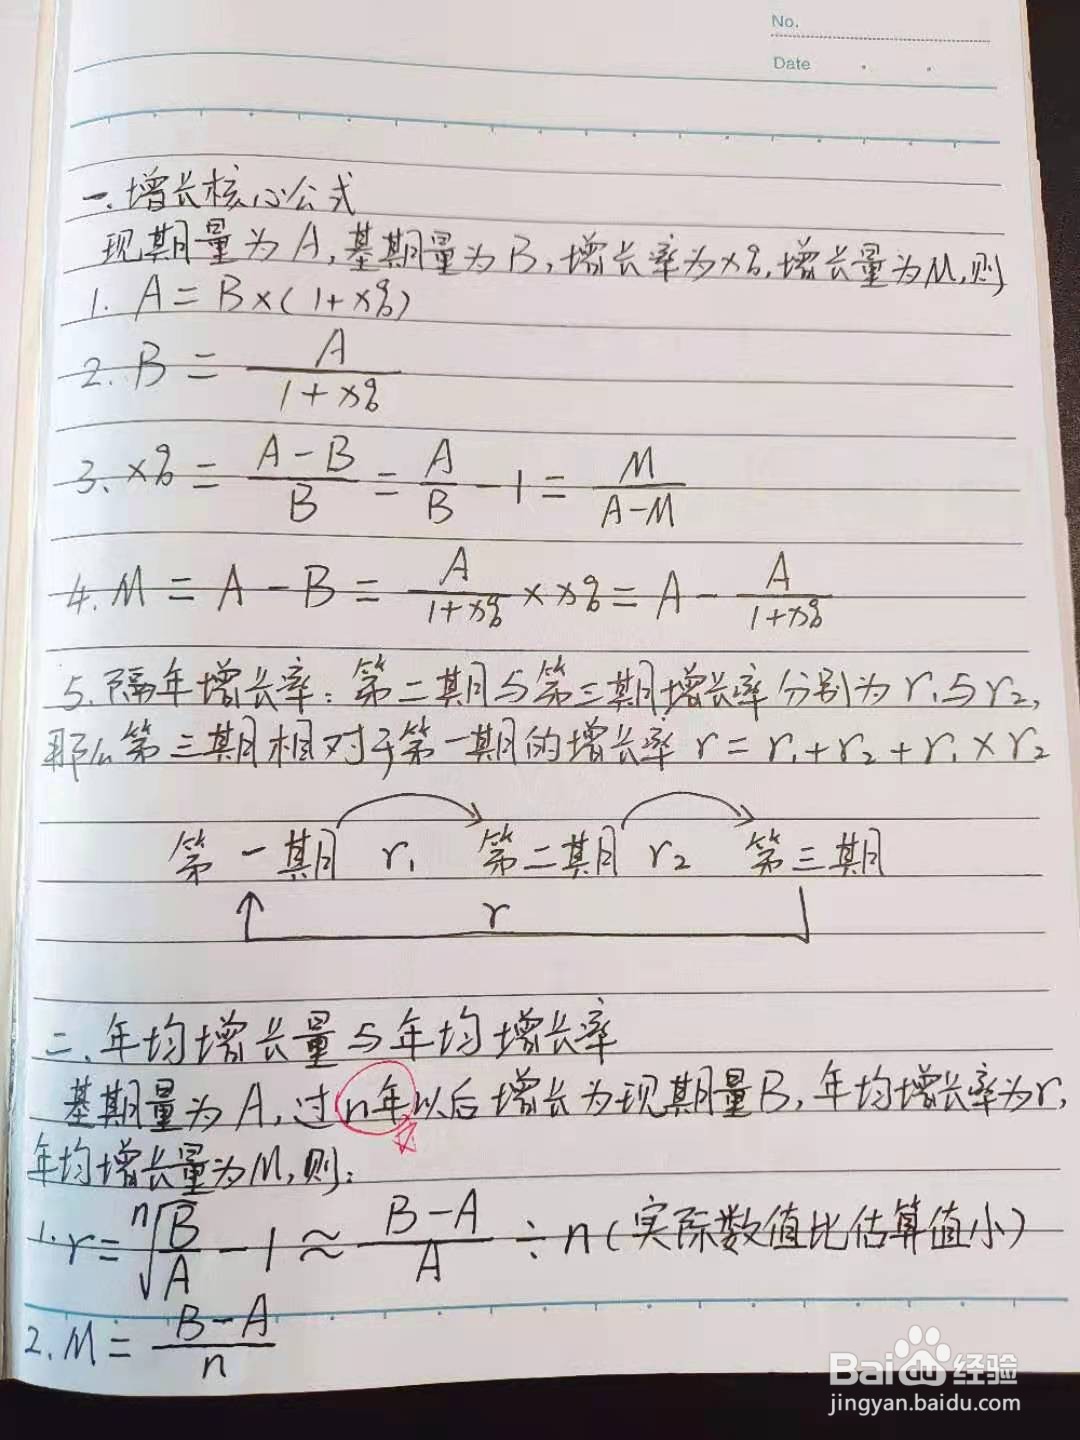 No.
Date
一.增长核心公式
现期量为A,基期量为B,增长率为x%,增长量为M,则
1. A=B×(1+x%)
2. B = A/(1+x%)
3. x% = (A-B)/B = A/B - 1 = M/(A-M)
4. M = A-B = A/(1+x%) × x% = A - A/(1+x%)
5.隔年增长率:第二期与第三期增长率分别为r₁与r₂,
那么第三期相对于第一期的增长率 r=r₁+r₂+r₁×r₂
第一期 r₁ 第二期 r₂ 第三期
r
二.年均增长量与年均增长率
基期量为A,过n年以后增长为现期量B,年均增长率为r,
年均增长量为M,则:
1. r= ⁿ√(B/A) - 1 ≈ (B-A)/A ÷ n (实际数值比估算值小)
2. M = (B-A)/n
Baidu经验
jingyan.baidu.com